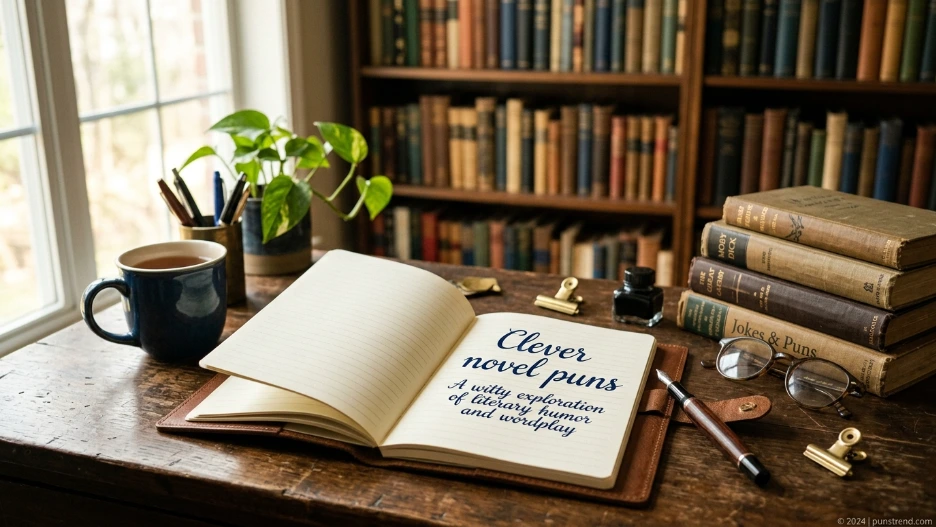 Clever
novel puns
A witty exploration
of literary humor
and wordplay
MOBY
DICK
THE GREAT
Jokes & Puns
© 2024 | punstrend.com